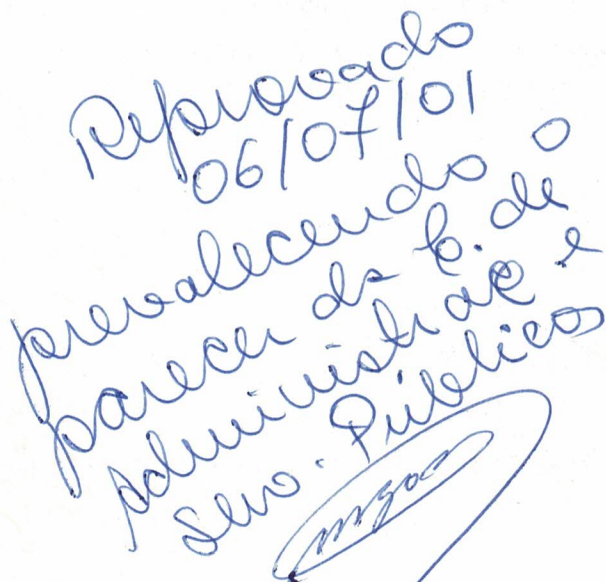 Reprovado
06/07/01
prevalecendo o
parecer da C. de
administraç e
Serv. Públicos